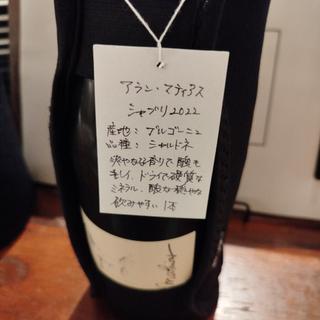 アラン・マティアス
シャブリ2022
産地：ブルゴーニュ
品種：シャルドネ
爽やかな香りで酸も
キレイ、ドライで硬質な
ミネラル、酸が穏やか
飲みやすい1本